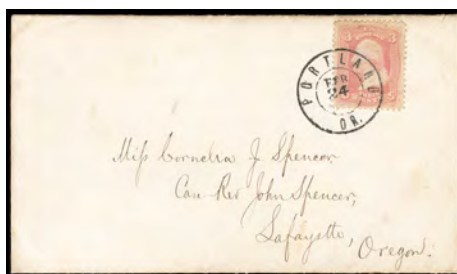 3 3
PORTLAND
FEB
24
OR.
Miss Cornelia J Spencer
Care Rev John Spencer,
Lafayette,
Oregon.